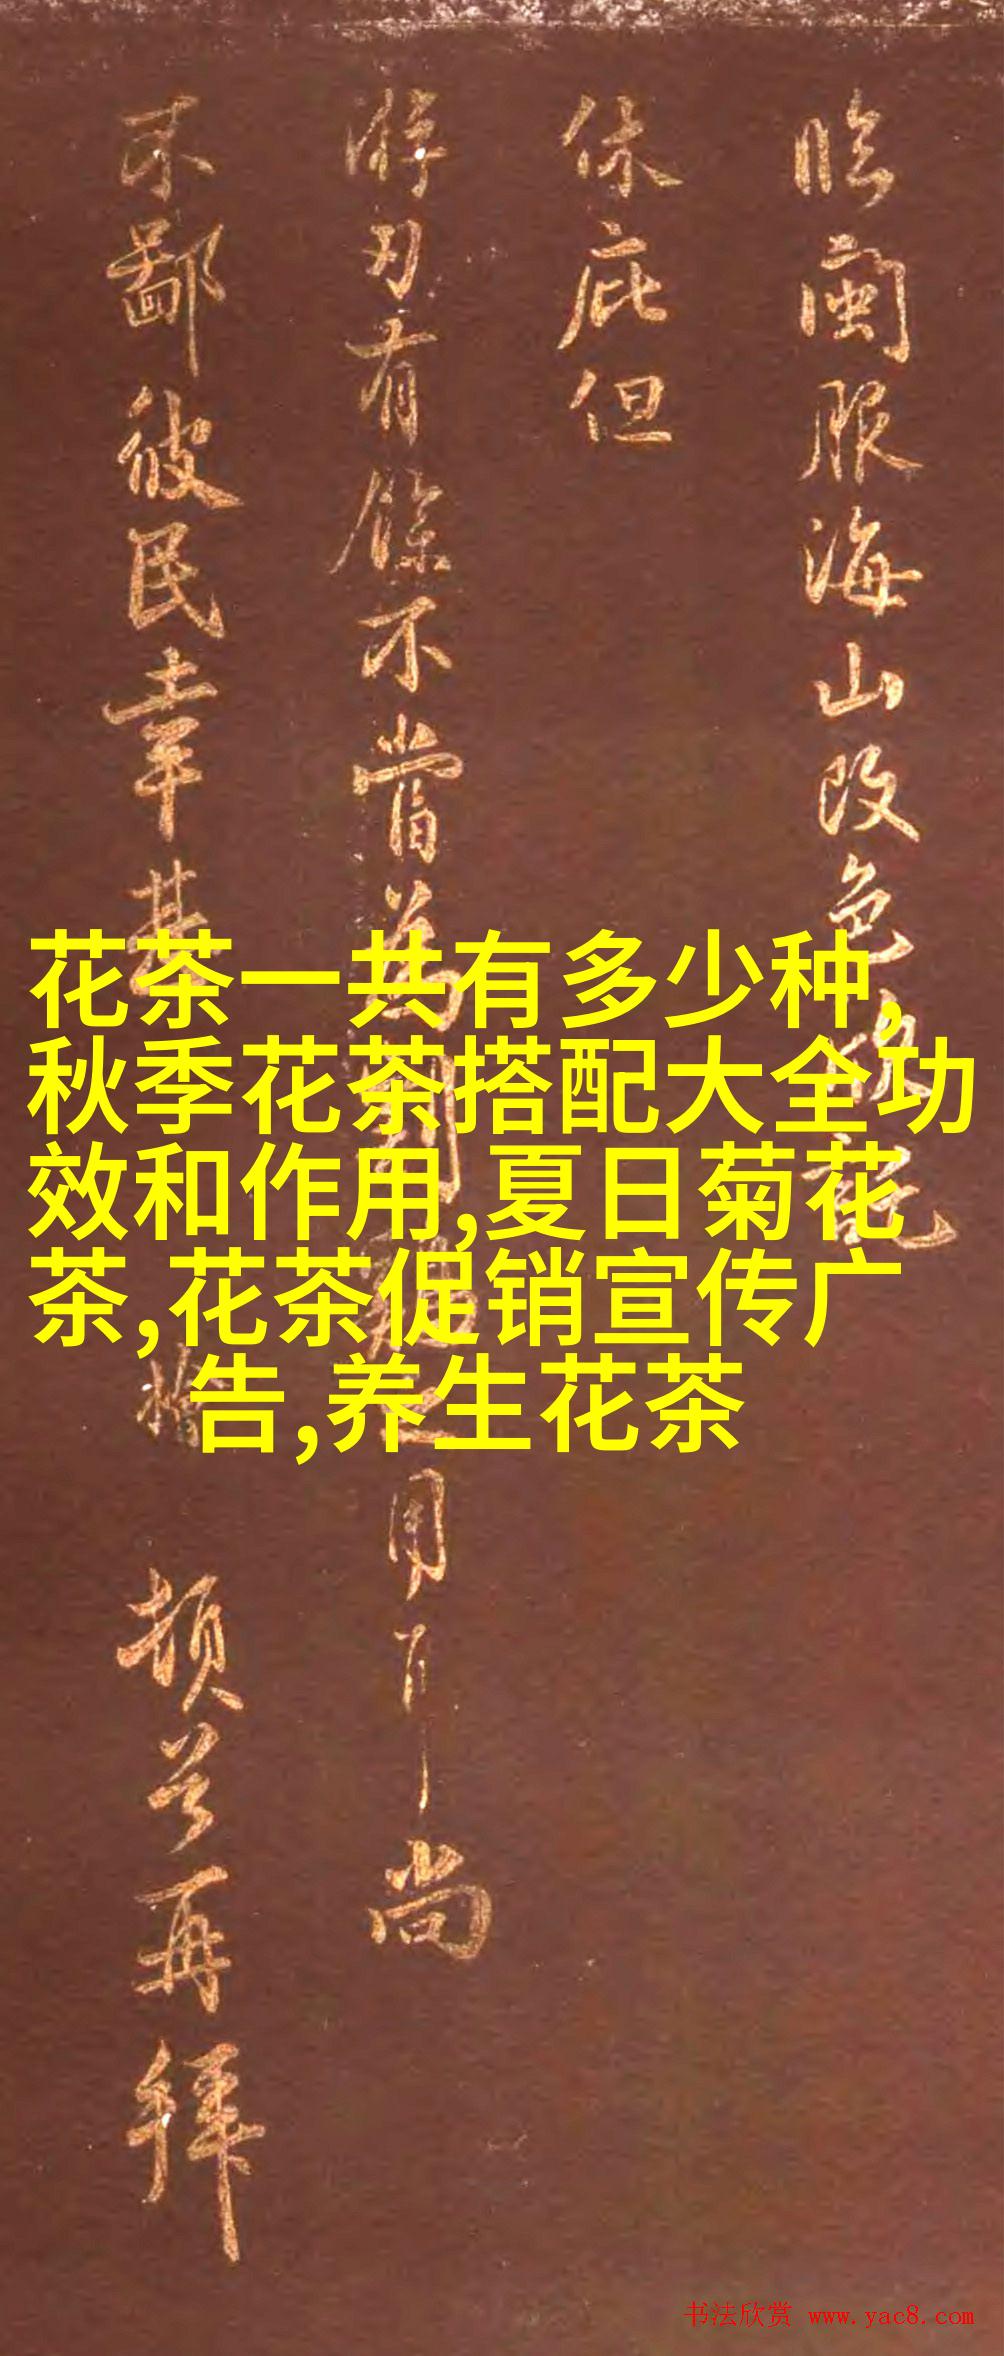 臨閩服海山改色
休庇但
游刃有餘不嘗
用
尚
不鄙彼民幸甚
頓首再拜
花茶一共有多少种,
秋季花茶搭配大全功
效和作用,夏日菊花
茶,花茶促销宣传广
告,养生花茶
书法欣赏 www.yac8.com